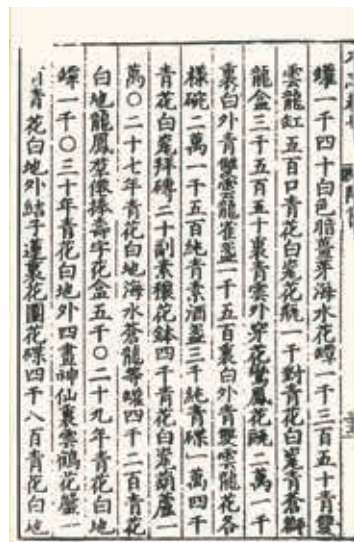 罐一千四十白色暗薑芽海水花罈一千三百五十青雙
雲龍缸五百口青花白瓷瓶一千對青花白瓷青蒼獅
龍盒三千五百五十裏青雲外穿花鸞鳳花瓯二萬一千
裏白外青雙雲龍雀盞一千五百裏白外青雙雲龍花各
樣碗二萬一千五百純青素酒盞三千純青碟一萬四千
青花白瓷拜磚二十副素穰花鉢四千青花白瓷葫蘆一
萬○二十七年青花白地海水蒼龍等罐四千二百青花
白地龍鳳羣僊捧壽字花盒五千○二十九年青花白地
罈一千○三十年青花白地外四畫神仙裏雲鶴花盤一
青花白地外結子蓮裏花團花碟四千八百青花白地